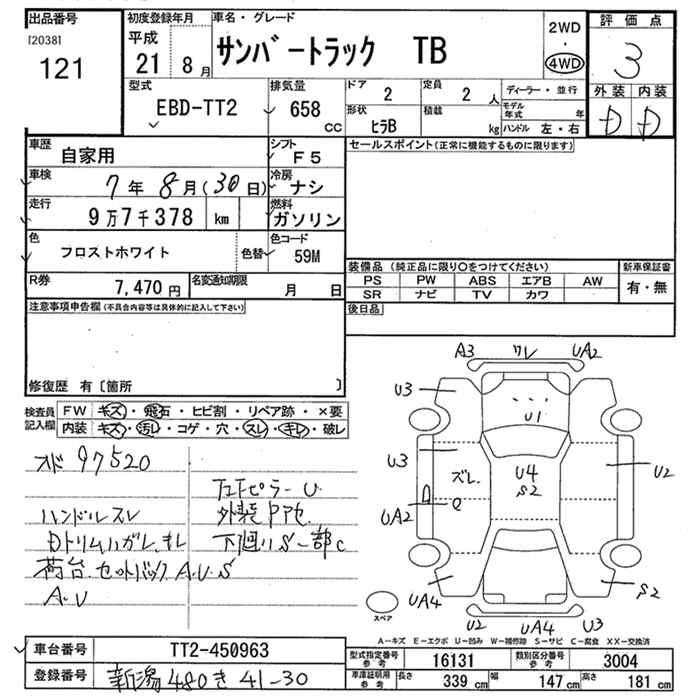 出品番号 初度登録年月 車名・グレード 評価点
[2038]
121
平成
21 8月
サンバートラック TB
2WD
・
4WD
3
型式 排気量 ドア 定員 ディーラー・並行 外装 内装
EBD-TT2 658 CC 2 2人
形状 積載 モデル年式 年
ヒラB kg ハンドル 左・右
D D
車歴 シフト セールスポイント(正常に機能するものに限ります)
自家用 F5
車検 冷房
7年8月(30日) ナシ
走行 燃料
9万7千378 km ガソリン
色 色替 色コード
フロストホワイト 59M
装備品(純正品に限り○をつけてください) 新車保証書
PS PW ABS エアB AW 有・無
SR ナビ TV カワ
R券 名変通知期限 後日品
7,470円 月 日
注意事項申告欄(不具合内容等は具体的に記入して下さい)
修復歴 有〔箇所 〕
検査員記入欄
FW キズ・飛石・ヒビ割・リペア跡・×要
内装 キズ・汚レ・コゲ・穴・スレ・キレ・破レ
メド 97520
ハンドルスレ
Dトリムハガレ、キレ
荷台、セットバックA.U.S
A.U
ピラーU
外装
下廻りS一部C
A3 ワレ UA2
U3 U1
U3 ズレ U4 S2 U2
UA2
UA4 S2
U2 UA4 U3
スペア
A-キズ E-エクボ U-凹み W-補修跡 S-サビ C-腐食 XX-交換済
車台番号 TT2-450963
登録番号 新潟480き41-30
型式指定番号 参考 16131 類別区分番号 参考 3004
車庫証明用 参考 長さ 339cm 幅 147cm 高さ 181cm